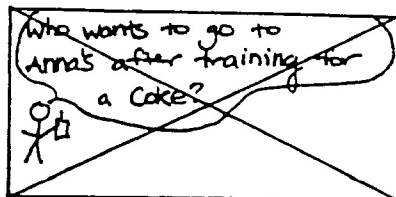 Who wants to go to
Anna's after training for
a Coke?